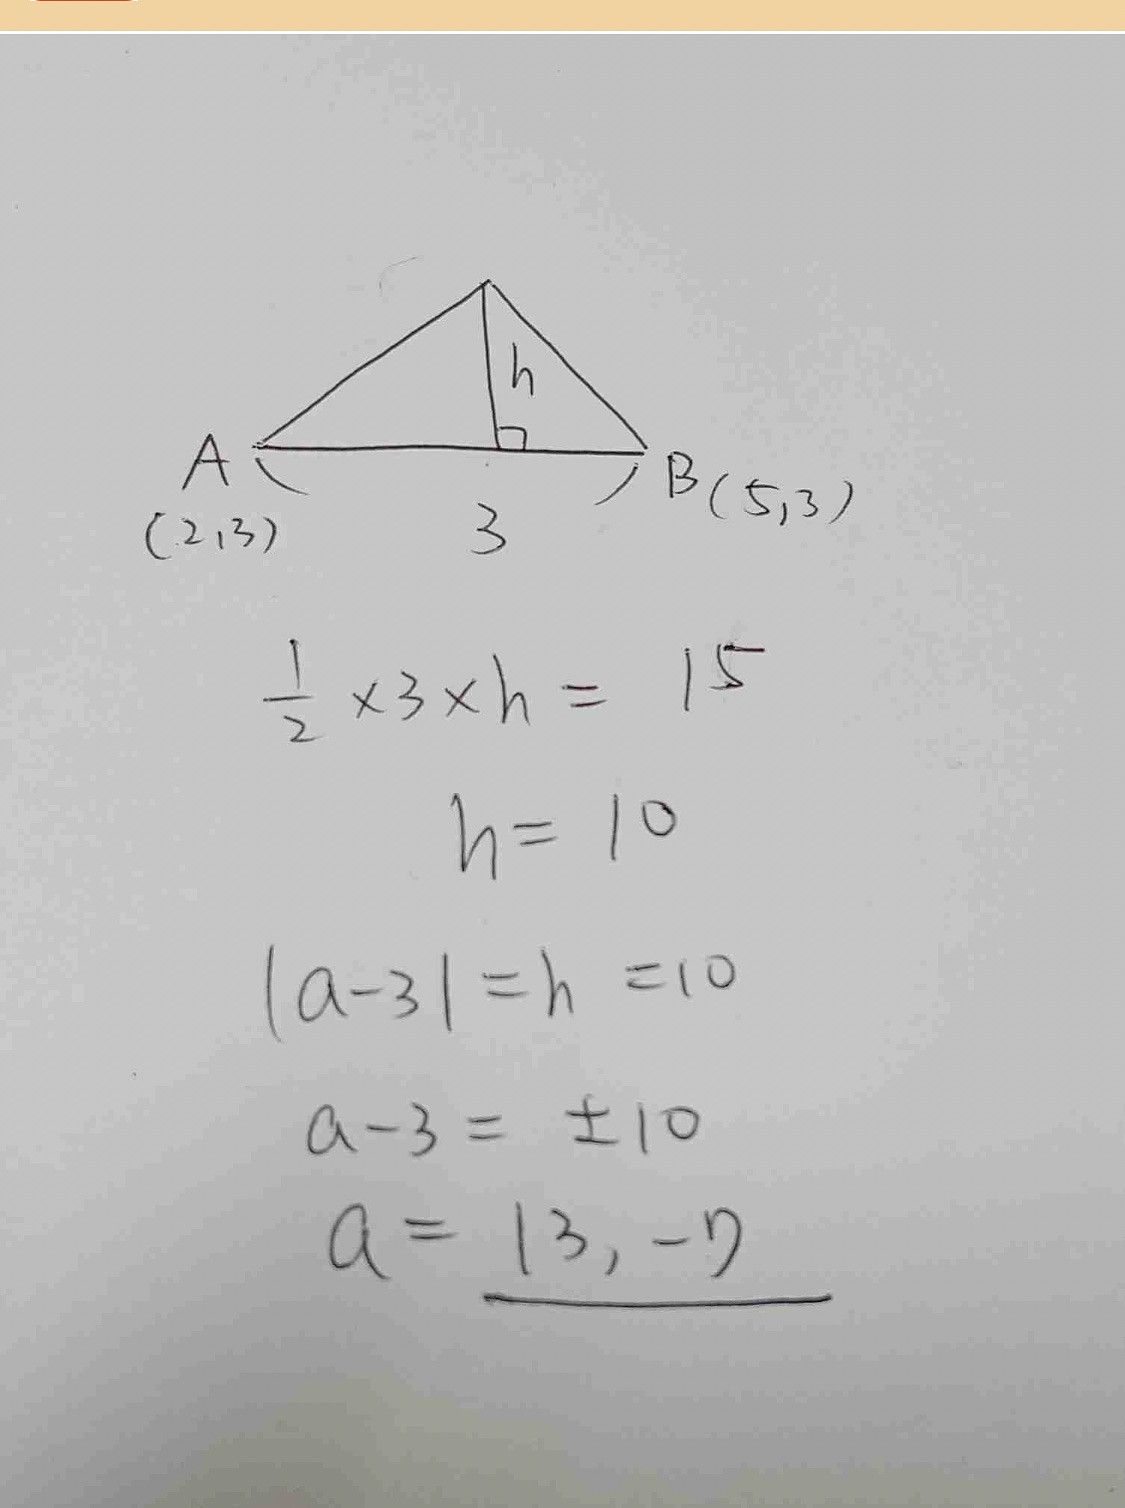 h
A
B(5,3)
(2,3)
3
1/2 × 3 × h = 15
h = 10
|a-3| = h = 10
a-3 = ±10
a = 13, -7